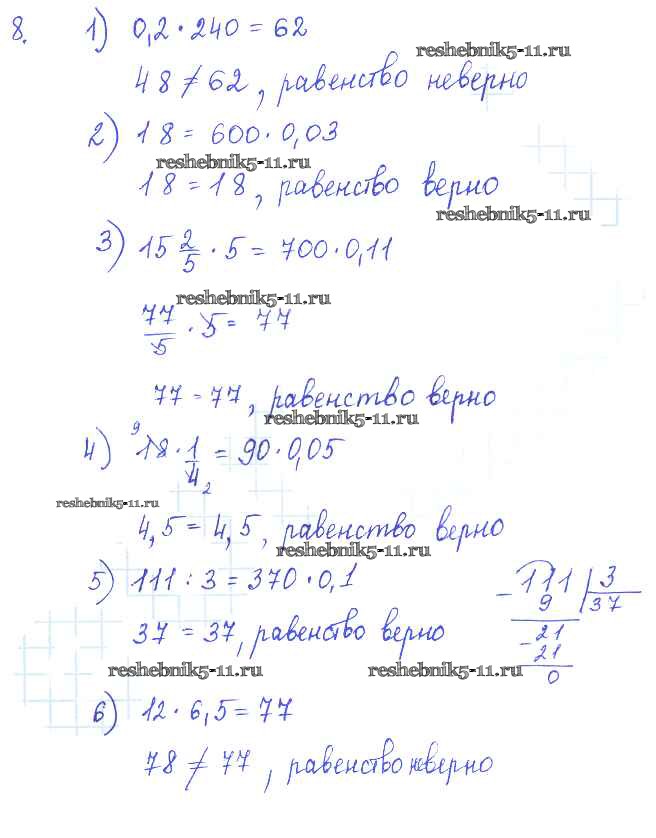 8. 1) 0,2 · 240 = 62
reshebnik5-11.ru
48 ≠ 62, равенство неверно
2) 18 = 600 · 0,03
reshebnik5-11.ru
18 = 18, равенство верно
reshebnik5-11.ru
3) 15 2/5 · 5 = 700 · 0,11
reshebnik5-11.ru
77/5 · 5 = 77
77 = 77, равенство верно
reshebnik5-11.ru
9
4) 18 · 1/4 = 90 · 0,05
2
reshebnik5-11.ru
4,5 = 4,5, равенство верно
reshebnik5-11.ru
5) 111 : 3 = 370 · 0,1
- 111 | 3
9 37
37 = 37, равенство верно
- 21
21
0
reshebnik5-11.ru reshebnik5-11.ru
6) 12 · 6,5 = 77
78 ≠ 77, равенство неверно